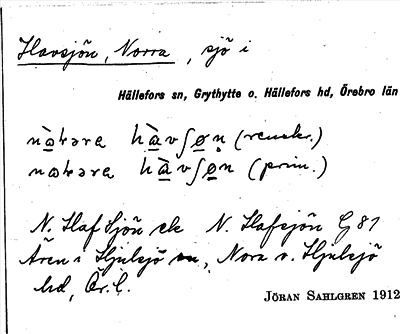 Havsjön, Norra, sjö i
Hällefors sn, Grythytte o. Hällefors hd, Örebro län
(renskr.)
(prim.)
N. Haf Sjön ek N. Hafsjön G 81
i Hjulsjö sn, Nora o. Hjulsjö
hd, Ör. l.
JÖRAN SAHLGREN 1912